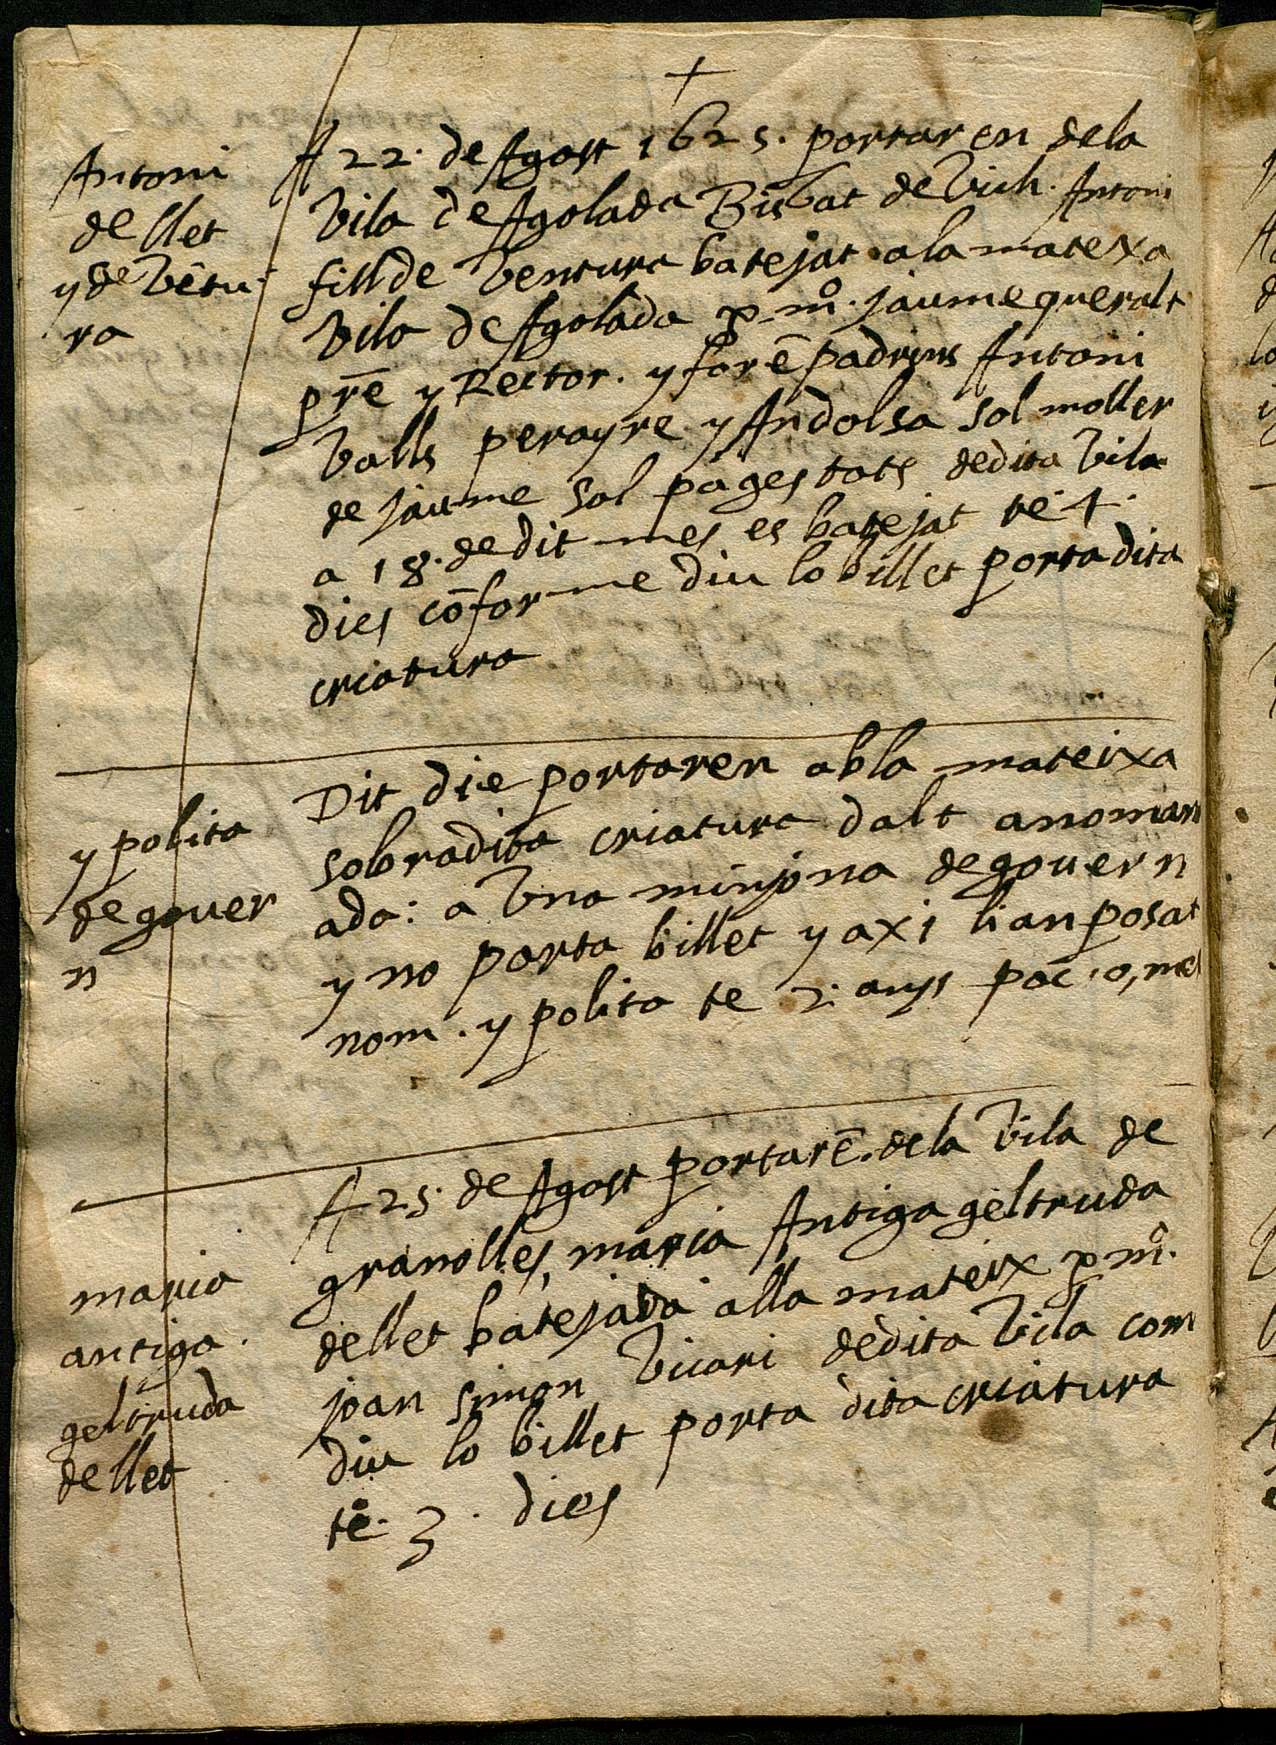 +
Antoni
de llet
y de vētu
ra
A 22. de Agost 1625. portaren dela
vila de Agolada Bisbat de Vich. Antoni
fill de Ventura batejat ala matexa
vila de Agolada p mº. jaume queralt
prē y Rector. y forē padrins Antoni
valls perayre y Andolsa sol moller
de jaume sol pages tots dedita vila
a 18. de dit mes es batejat te 4.
dies cōforme diu lo billet porta dita
criatura
y polita
de gover
n
Dit die portaren abla mateixa
sobradita criatura dalt anoman
ada: a vna minyona de govern
y no porta billet y axi li an posat
nom. y polita te 2. anys poc .o, mes
maria
antiga.
geltruda
de llet
A 25. de Agost portarē. dela vila de
granolles, maria Antiga geltruda
dellet batejada alla mateix p mº.
joan simon vicari dedita vila com
diu lo billet porta dita criatura
te. 3. dies